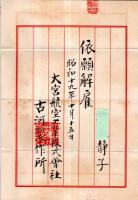 静子
依願解雇
昭和十九年十月十五日
大宮航空工業株式會社
古河製作所